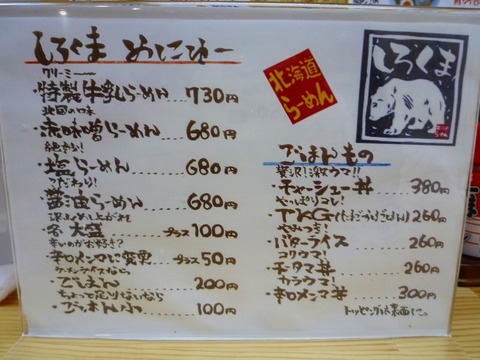 しろくま めにゅー
クリーミー〜
・特製牛乳らーめん……730円
北国の味
・赤味噌らーめん……680円
絶妙な!
・塩らーめん……680円
こだわり!
・醤油らーめん……680円
沢山めし上がれ
・各 大盛 プラス100円
辛いのがお好き?
・辛口メンマに変更 プラス50円
ラーメンライスなら
・ごはん……200円
ちょっと足りないなら
・ごはん小……100円
北海道
らーめん
しろくま
ごはんもの
贅沢!激ウマ!!
・チャーシュー丼……380円
やっぱりコレ!
・TKG(たまごかけごはん)260円
やみつき!
・バターライス……260円
コクウマ!
・チータマ丼……260円
カラウマ!
・辛口メンマ丼……300円
トッピングは裏面に。